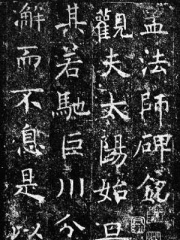 孟法師碑銘
觀夫太陽始旦
其若馳巨川分
解而不息是以